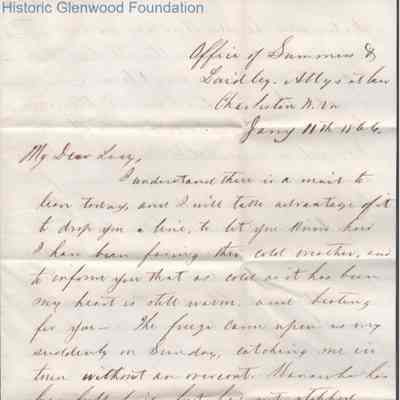 Historic Glenwood Foundation
Office of Summers &
Laidley. Attys at law
Charleston W. Va
Jany 11th 1866.
My Dear Lucy,
I understand there is a mail to
leave today, and I will take advantage of it
to drop you a line, to let you know how
I have been facing this cold weather, and
to inform you that as cold as it has been
my heart is still warm and beating
for you — The freeze came upon us very
suddenly on Sunday, catching me in
town without an overcoat. Kanawha has
but has not stopped